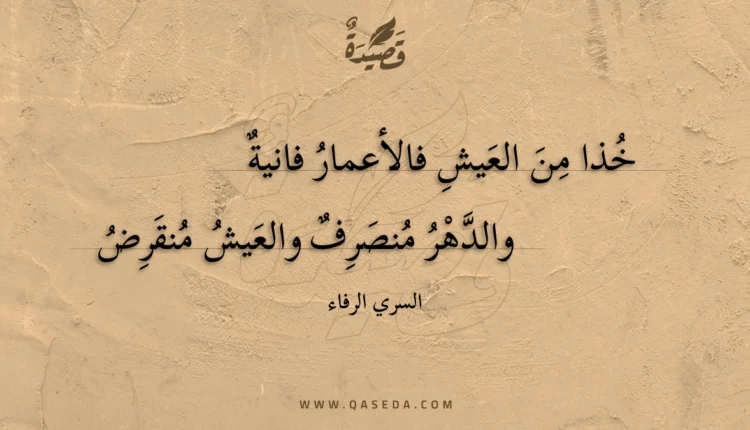 قَصِيدَةٌ
خُذا مِنَ العَيشِ فالأعمارُ فانيةٌ
والدَّهْرُ مُنصَرِفٌ والعَيشُ مُنقَرِضُ
السري الرفاء
WWW.QASEDA.COM